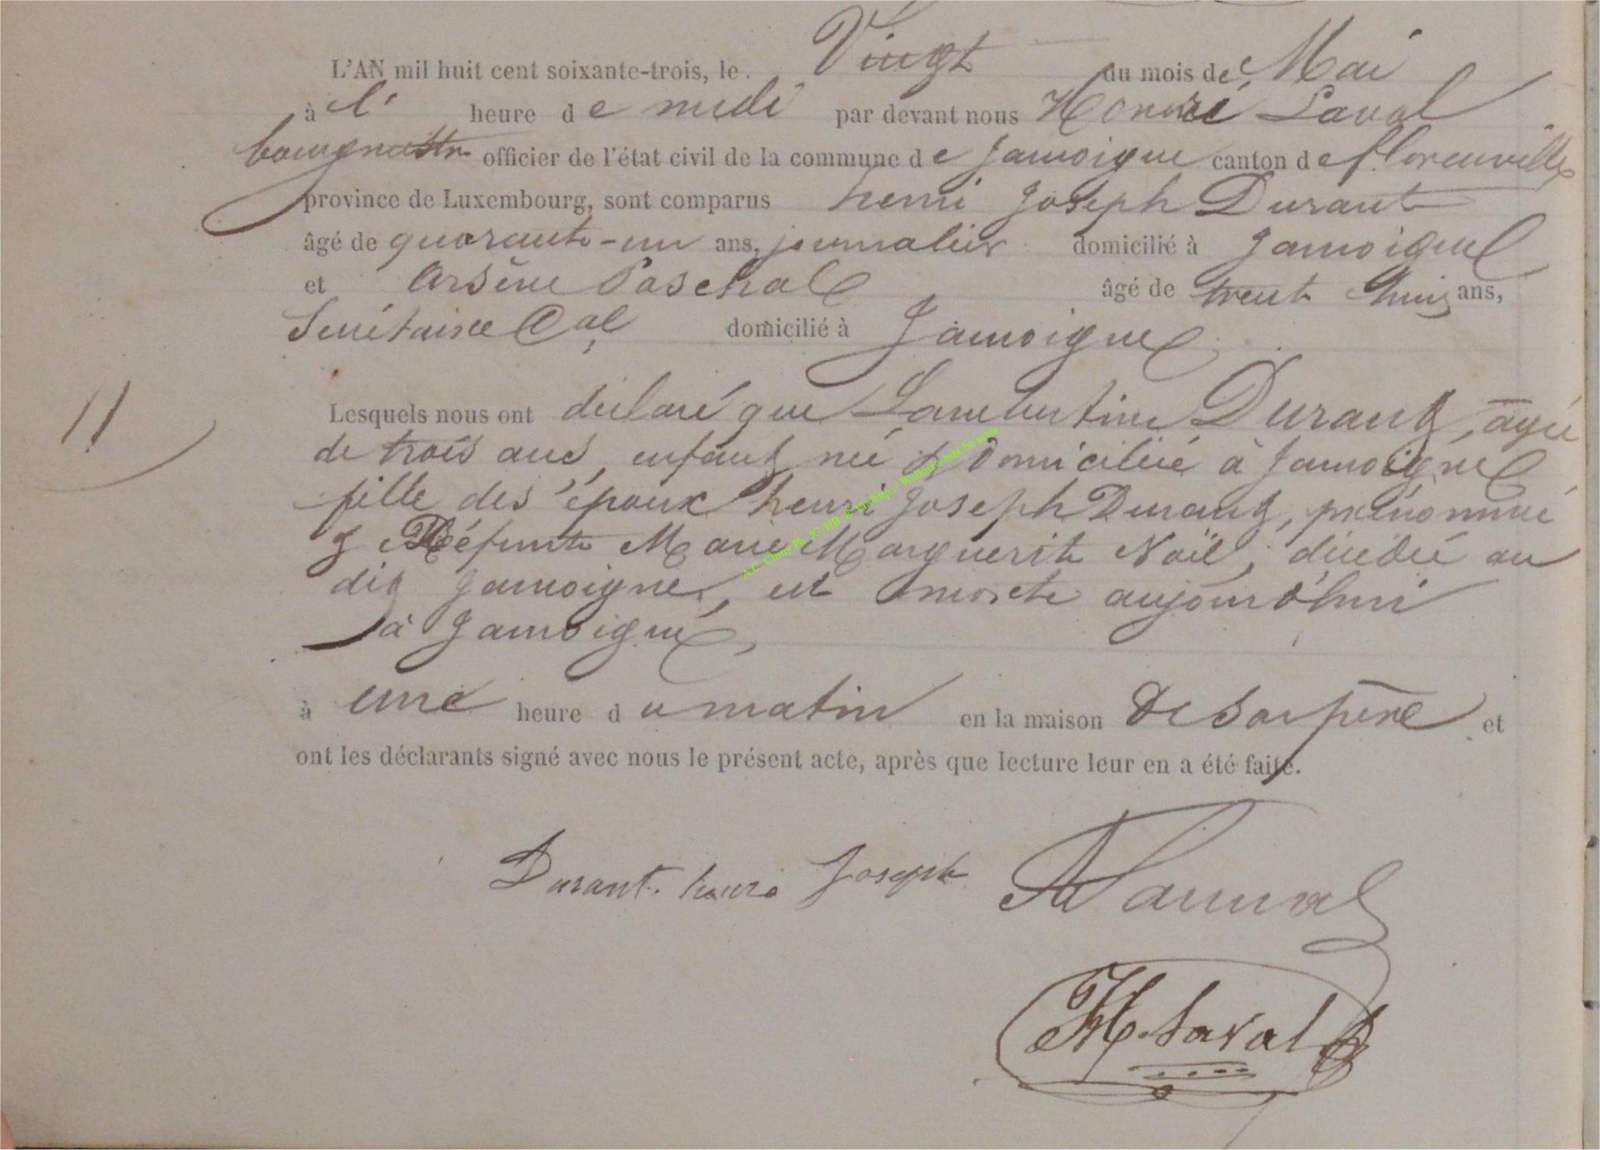 L'AN mil huit cent soixante-trois, le Vingt du mois de Mai
à l' heure de midi par devant nous Honoré Laval
bourgmestre officier de l'état civil de la commune de Jamoigne canton de florenville
province de Luxembourg, sont comparus henri Joseph Durant
âgé de quarante-un ans, journalier domicilié à Jamoigne
et Arsène Paschal âgé de trent ans,
Secrétaire Cal domicilié à Jamoigne
11
Lesquels nous ont déclaré que Lambertine Durant, agée
de trois ans, enfant née & domiciliée à Jamoigne
fille des époux henri Joseph Durant, prénommé
& Défunte Marie Marguerite Noël, décédée au
dit Jamoigne, est morte aujourd'hui
à Jamoigne,
à une heure du matin en la maison de son père et
ont les déclarants signé avec nous le présent acte, après que lecture leur en a été faite.
Durant henri Joseph
H. Laval